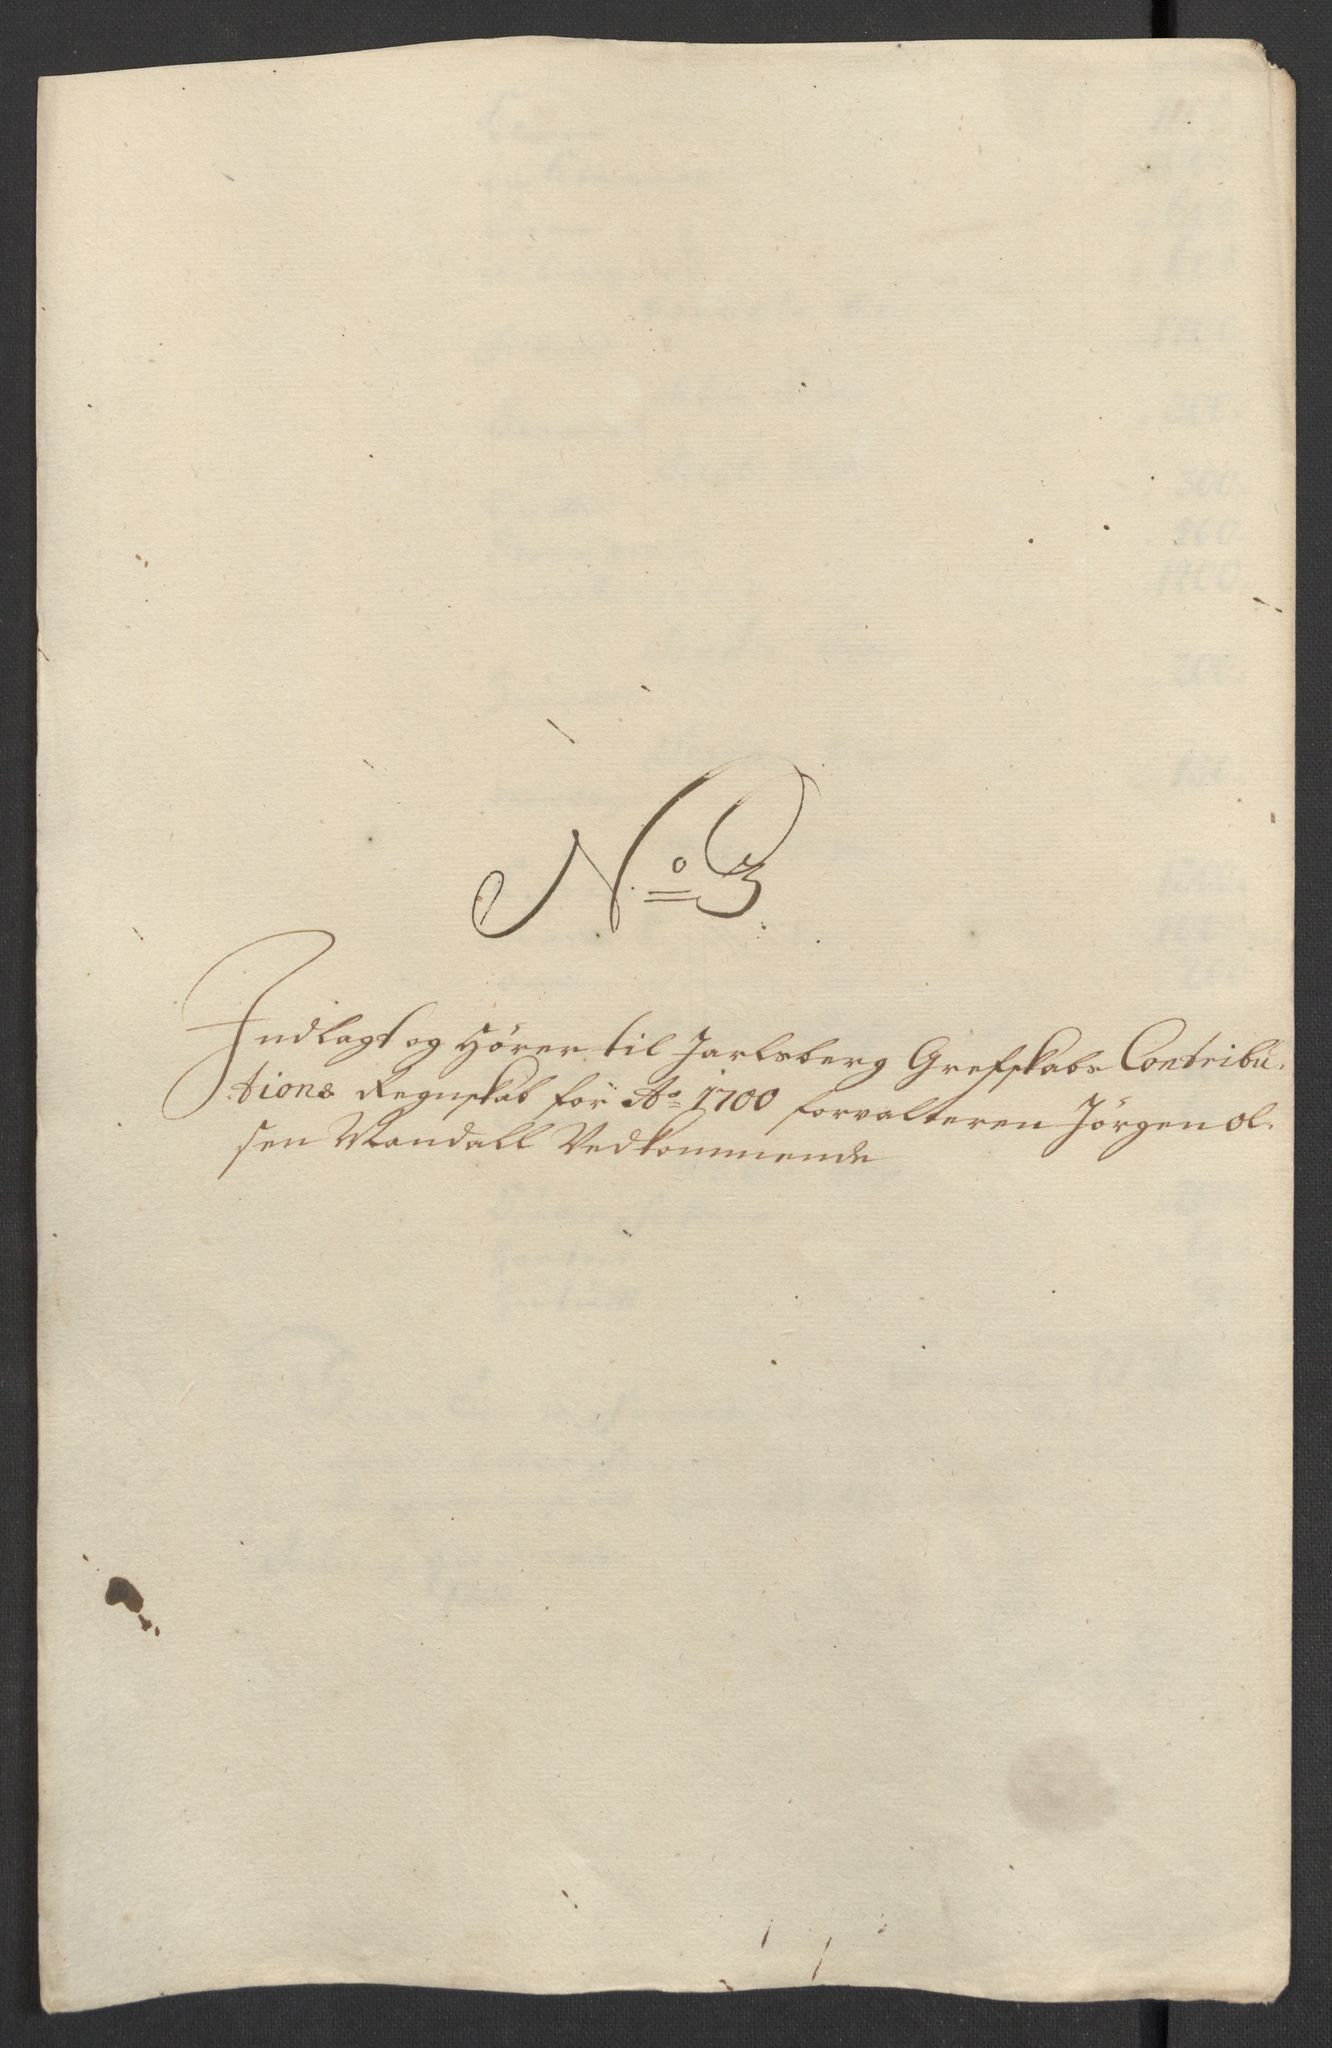 No 3
Indlagt og Hörer til Jarlsberg Grefskabs Contribu-
tions Regnskab for Ao 1700 forvalteren Jörgen Ol-
sen Mandall Vedkommende